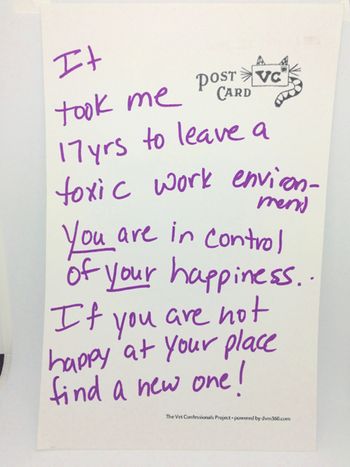 It
POST VC
CARD
took me
17yrs to leave a
toxic work environ-
ment
You are in control
of your happiness..
If you are not
happy at your place
find a new one!
The Vet Confessionals Project • powered by dvm360.com